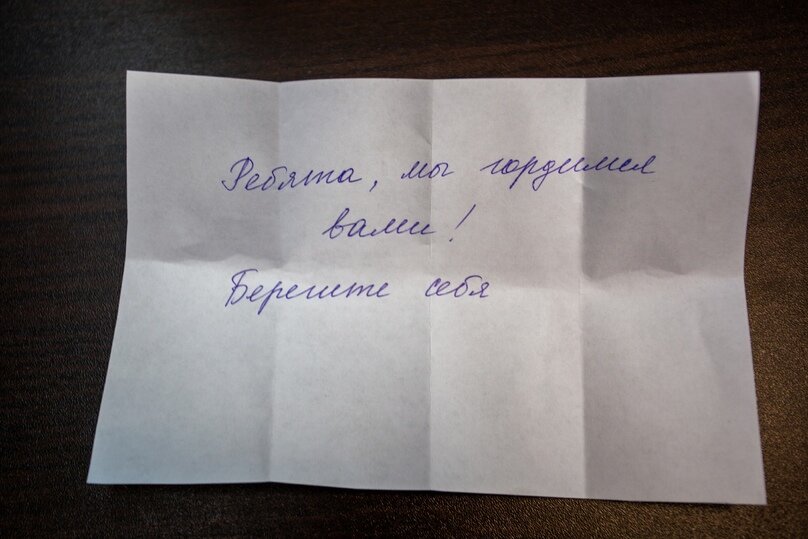 Ребята, мы гордимся
вами!
Берегите себя